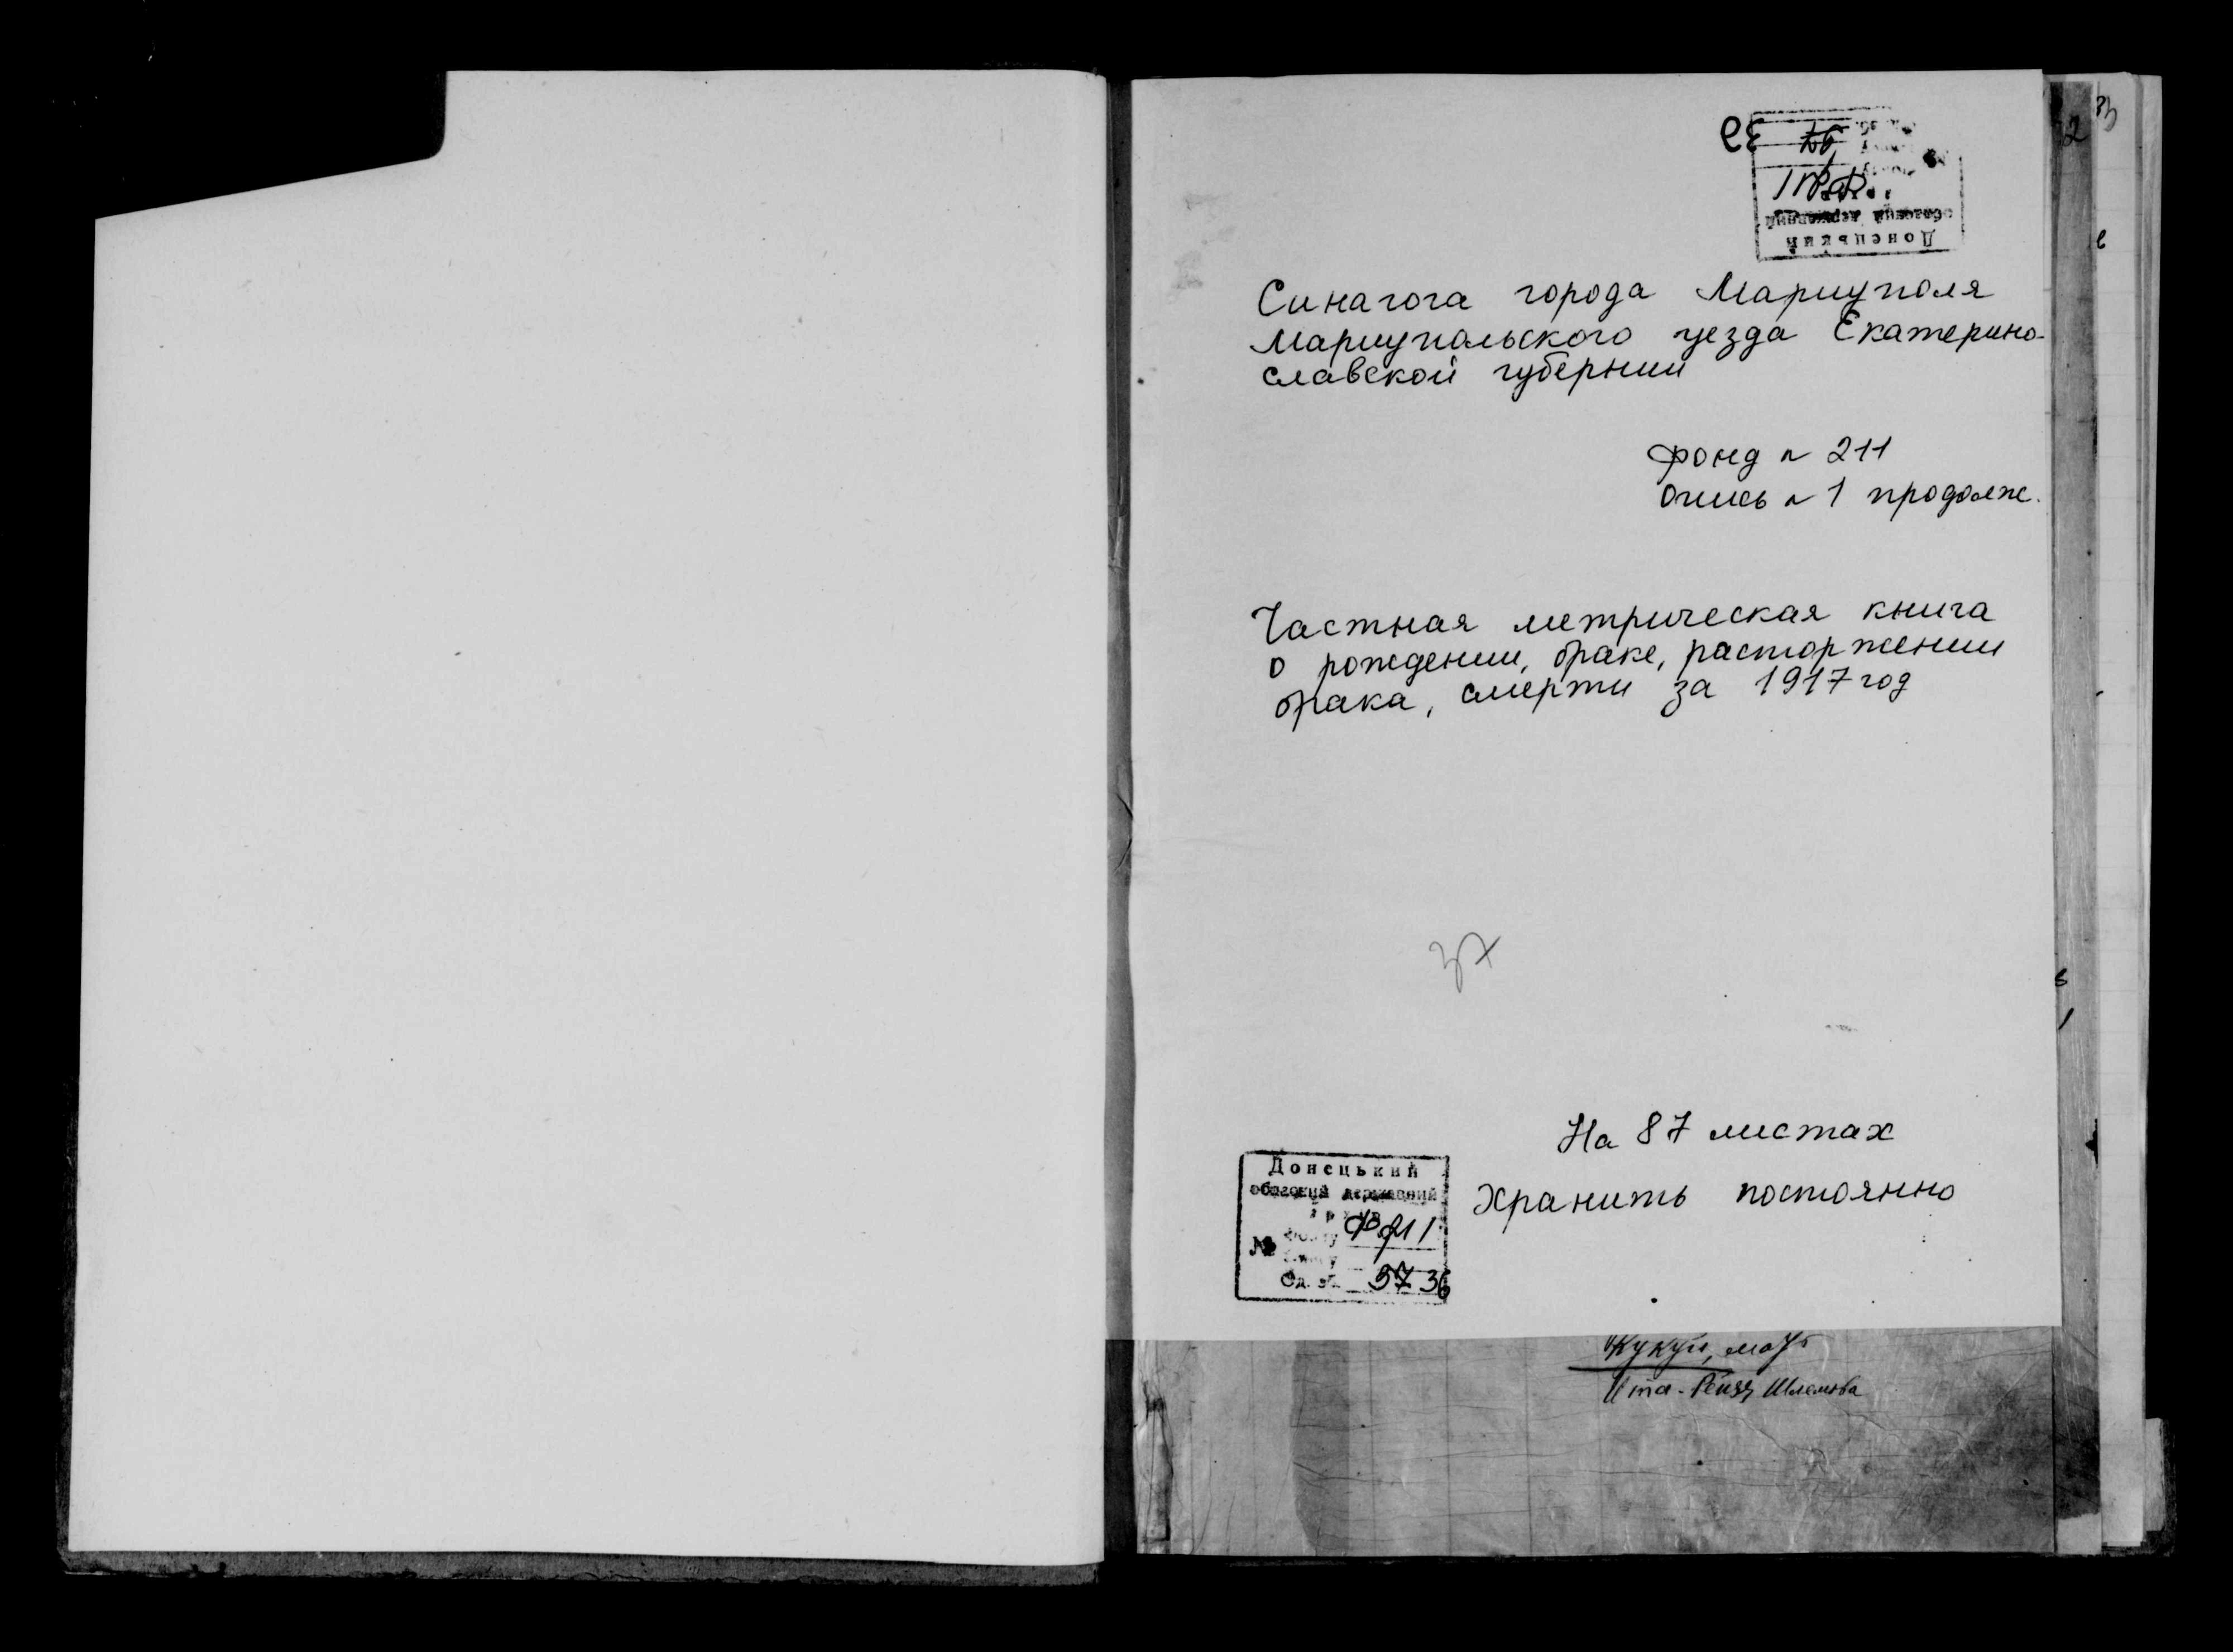 Синагога города Мариуполя
Мариупольского уезда Екатерино-
славской губернии
Фонд № 211
Опись № 1 продолж.
Частная метрическая книга
о рождении, браке, расторжении
брака, смерти за 1917 год
37
На 87 листах
Хранить постоянно
Донецький
обласний державний
архив
№ фонду Ф 211
Од. зб. 37 36
Кукуй, мать
Ита-Рейзя Шлемова